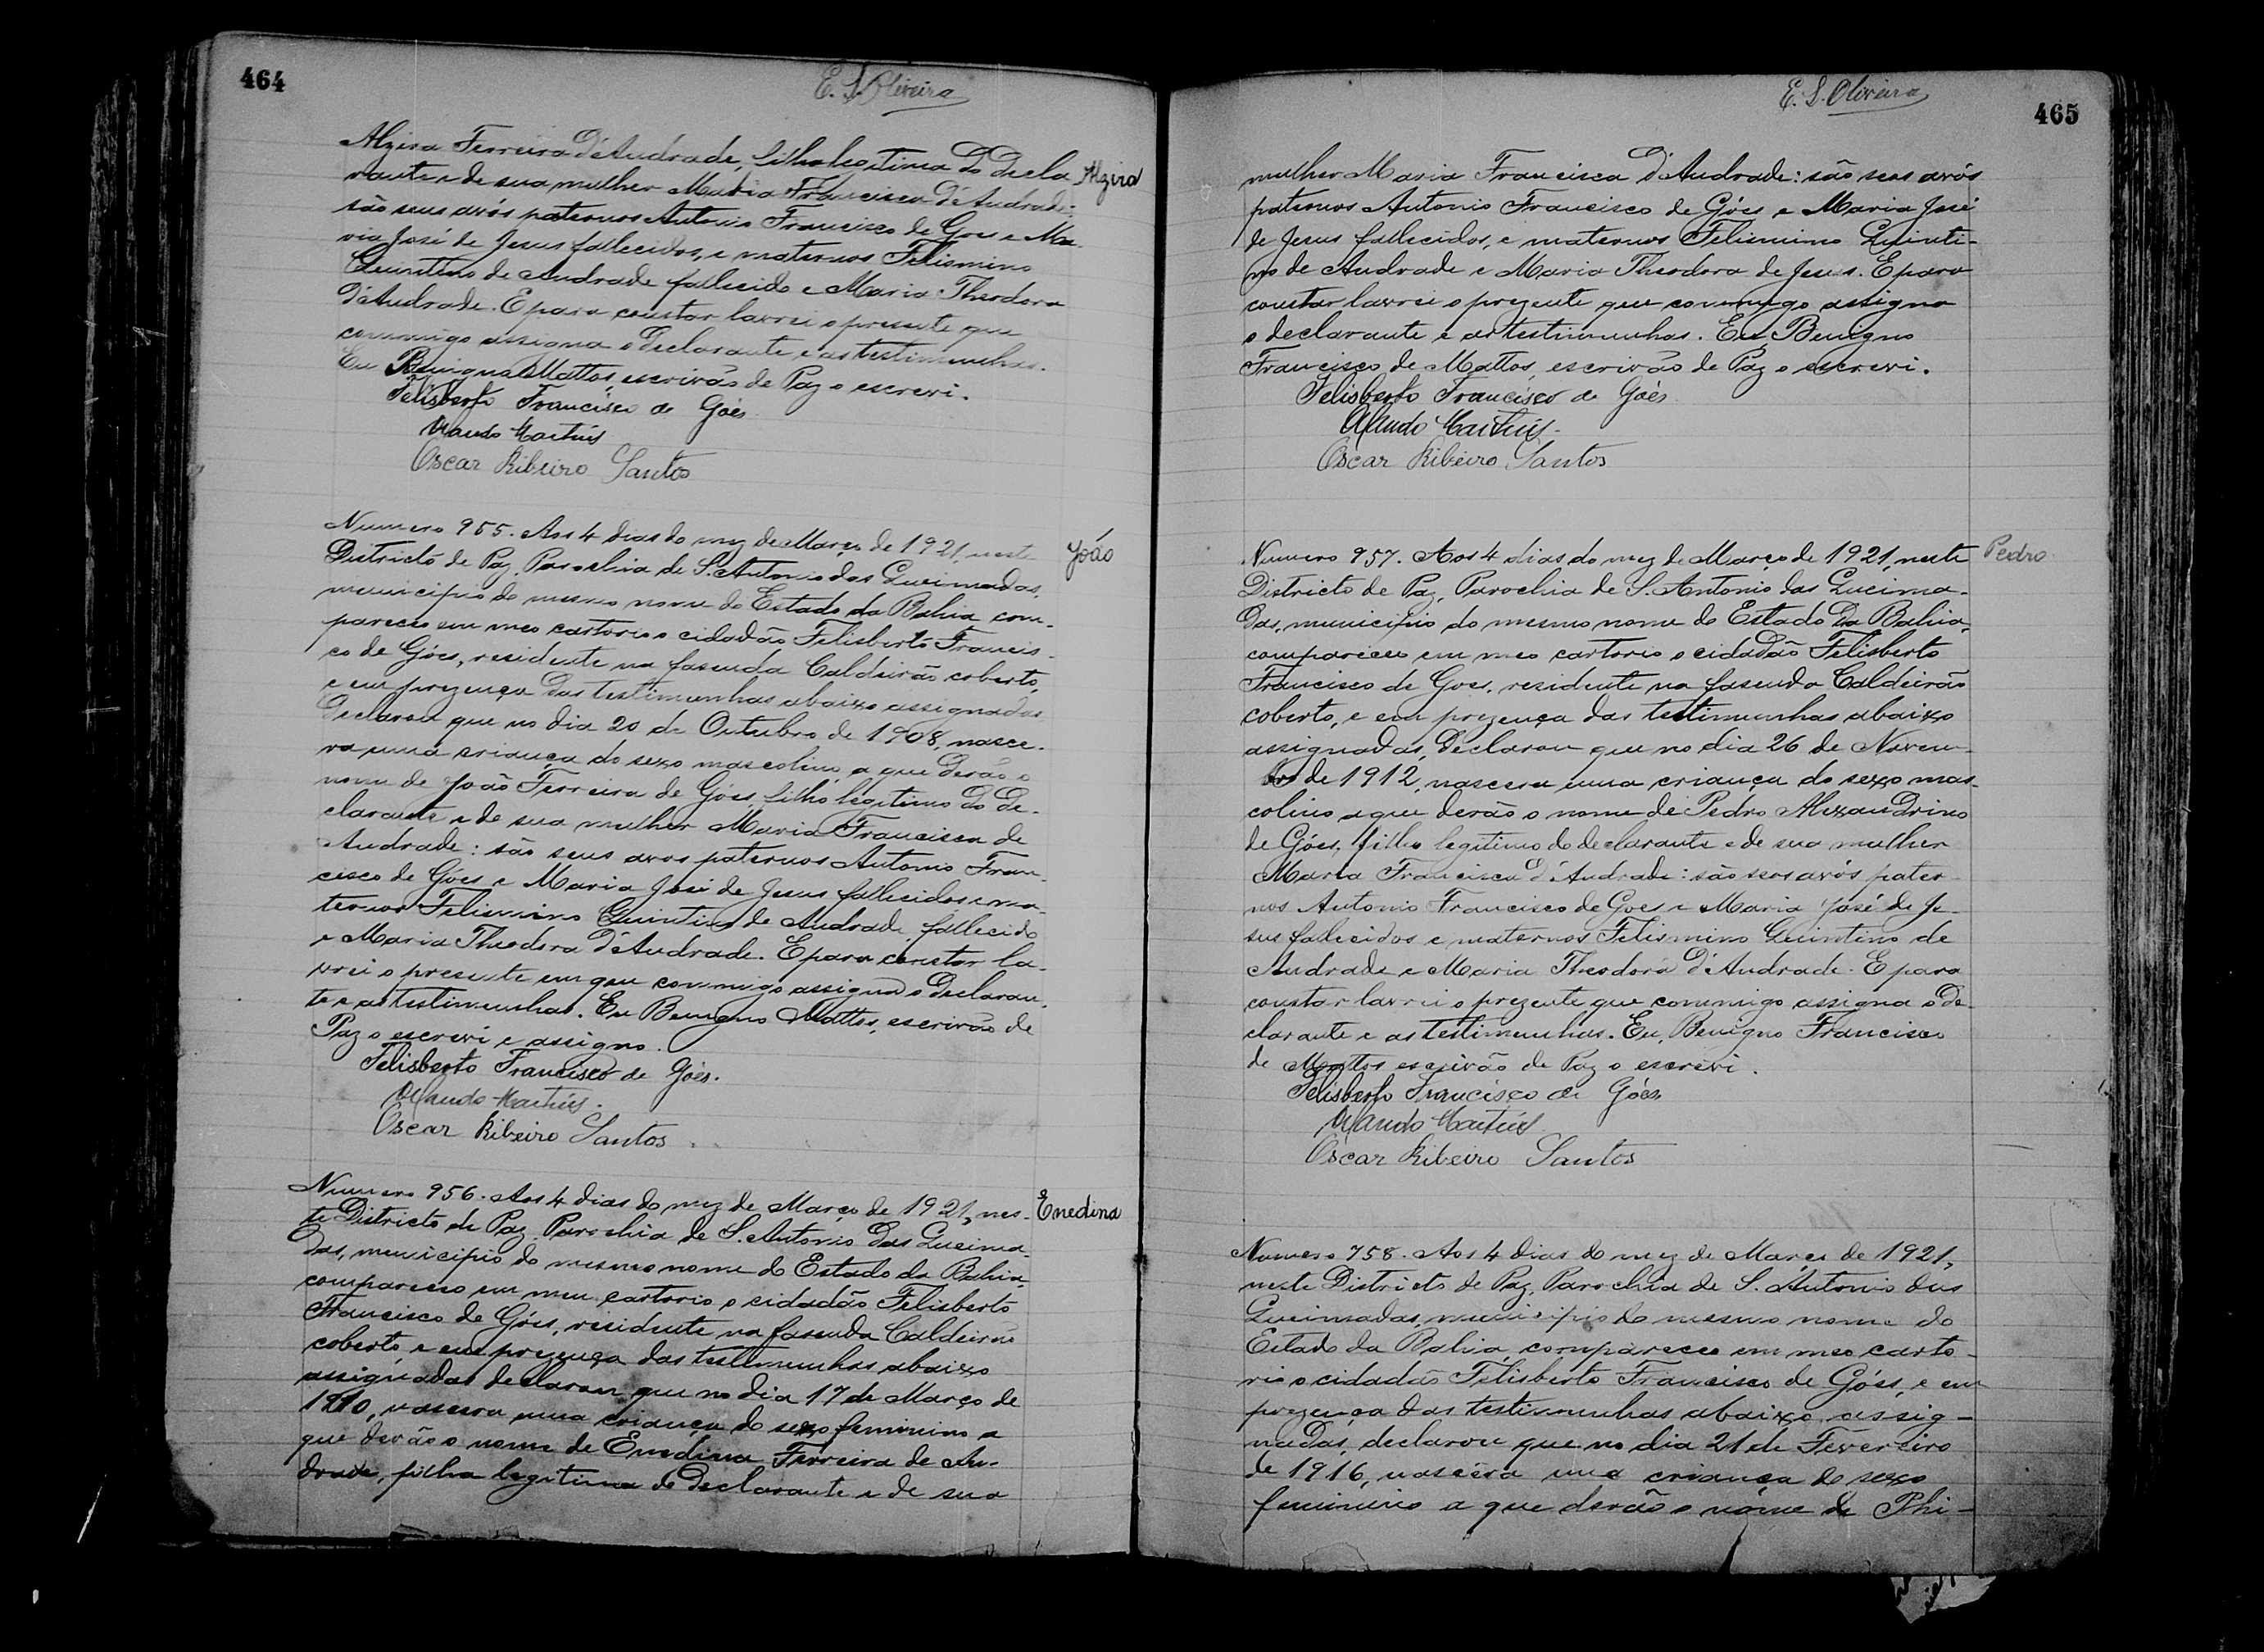 464
E. S. Oliveira
Alzira Ferreira D'Andrade, filha legitima do decla
Alzira
rante e de sua mulher Maria Francisca d'Andrade:
são seus avós paternos Antonio Francisco de Goes e Ma
ria José de Jesus fallecidos, e maternos Felismino
Quintino de Andrade fallecido e Maria Theodora
D'Andrade. E para constar lavrei o presente que
commigo assigna o declarante e as testimunhas.
Eu Benigno Mattos, escrivão de Paz o escrevi.
Felisberto Francisco de Góes
Martins
Oscar Ribeiro Santos
Numero 955. Aos 4 dias do mez de Março de 1921, neste
João
Districto de Paz, Parochia de S. Antonio das Queimadas,
municipio do mesmo nome do Estado da Bahia, com-
pareceo em meo cartorio o cidadão Felisberto Francis-
co de Góes, residente na fasenda Caldeirão coberto,
e em prezença das testimunhas abaixo assignadas
declarou que no dia 20 de Outubro de 1908, nasce-
ra uma criança do sexo mascolino, a que derão o
nome de João Ferreira de Góes, filho legitimo do de-
clarante e de sua mulher Maria Francisca de
Andrade: são seus avos paternos Antonio Fran-
cisco de Góes e Maria José de Jesus fallecidos e ma-
ternos Felismino Quintino de Andrade, fallecido
e Maria Theodora D'Andrade. E para constar la-
vrei o presente em que commigo assigna o declaran-
te e as testimunhas. Eu Benigno Mattos, escrivão de
Paz o escrevi e assigno.
Felisberto Francisco de Góes.
Martins.
Oscar Ribeiro Santos
Numero 956. Aos 4 dias do mez de Março de 1921, nes-
Enedina
te Districto de Paz, Parochia de S. Antonio das Queima-
das, municipio do mesmo nome do Estado da Bahia,
compareceo em meu cartorio o cidadão Felisberto
Francisco de Góes, residente na fasenda Caldeirão
coberto e em prezença das testimunhas abaixo
assignadas declarou que no dia 17 de Março de
1910, nascera uma criança do sexo feminino a
que derão o nome de Enedina Ferreira de An-
drade, filha legitima do declarante e de sua
E. S. Oliveira
465
mulher Maria Francisca D'Andrade: são seus avós
paternos Antonio Francisco de Góes e Maria José
de Jesus fallecidos, e maternos Felismino Quinti-
no de Andrade e Maria Theodora de Jesus. E para
constar lavrei o prezente que commigo assigna
o declarante e as testimunhas. Eu, Benigno
Francisco de Mattos, escrivão de Paz o escrevi.
Felisberto Francisco de Góes
Martins.
Oscar Ribeiro Santos
Numero 957. Aos 4 dias do mez de Março de 1921, neste
Pedro
Districto de Paz, Parochia de S. Antonio das Queima-
das, municipio do mesmo nome do Estado da Bahia,
compareceo em meo cartorio o cidadão Felisberto
Francisco de Goes, residente na fasenda Caldeirão
coberto, e em prezença das testimunhas abaixo
assignadas, declarou que no dia 26 de Novem-
bro de 1912, nascera uma criança do sexo mas-
colino a que derão o nome de Pedro Alexandrino
de Góes, filho legitimo do declarante e de sua mulher
Maria Francisca d'Andrade: são seos avós pater-
nos Antonio Francisco de Goes e Maria José de Je-
sus fallecidos e maternos Felismino Quintino de
Andrade e Maria Theodora D'Andrade. E para
constar lavrei o prezente que commigo assigna o de-
clarante e as testimunhas. Eu, Benigno Francisco
de Mattos escrivão de Paz o escrevi.
Felisberto Francisco de Góes
Martins
Oscar Ribeiro Santos
Numero 958. Aos 4 dias do mez de Março de 1921,
neste Districto de Paz, Parochia de S. Antonio das
Queimadas, municipio do mesmo nome do
Estado da Bahia, compareceo em meo carto-
rio o cidadão Felisberto Francisco de Góes, e em
prezença das testimunhas abaixo assig-
nadas, declarou que no dia 21 de Fevereiro
de 1916, nascera uma criança do sexo
feminino a que derão o nome de Phi-